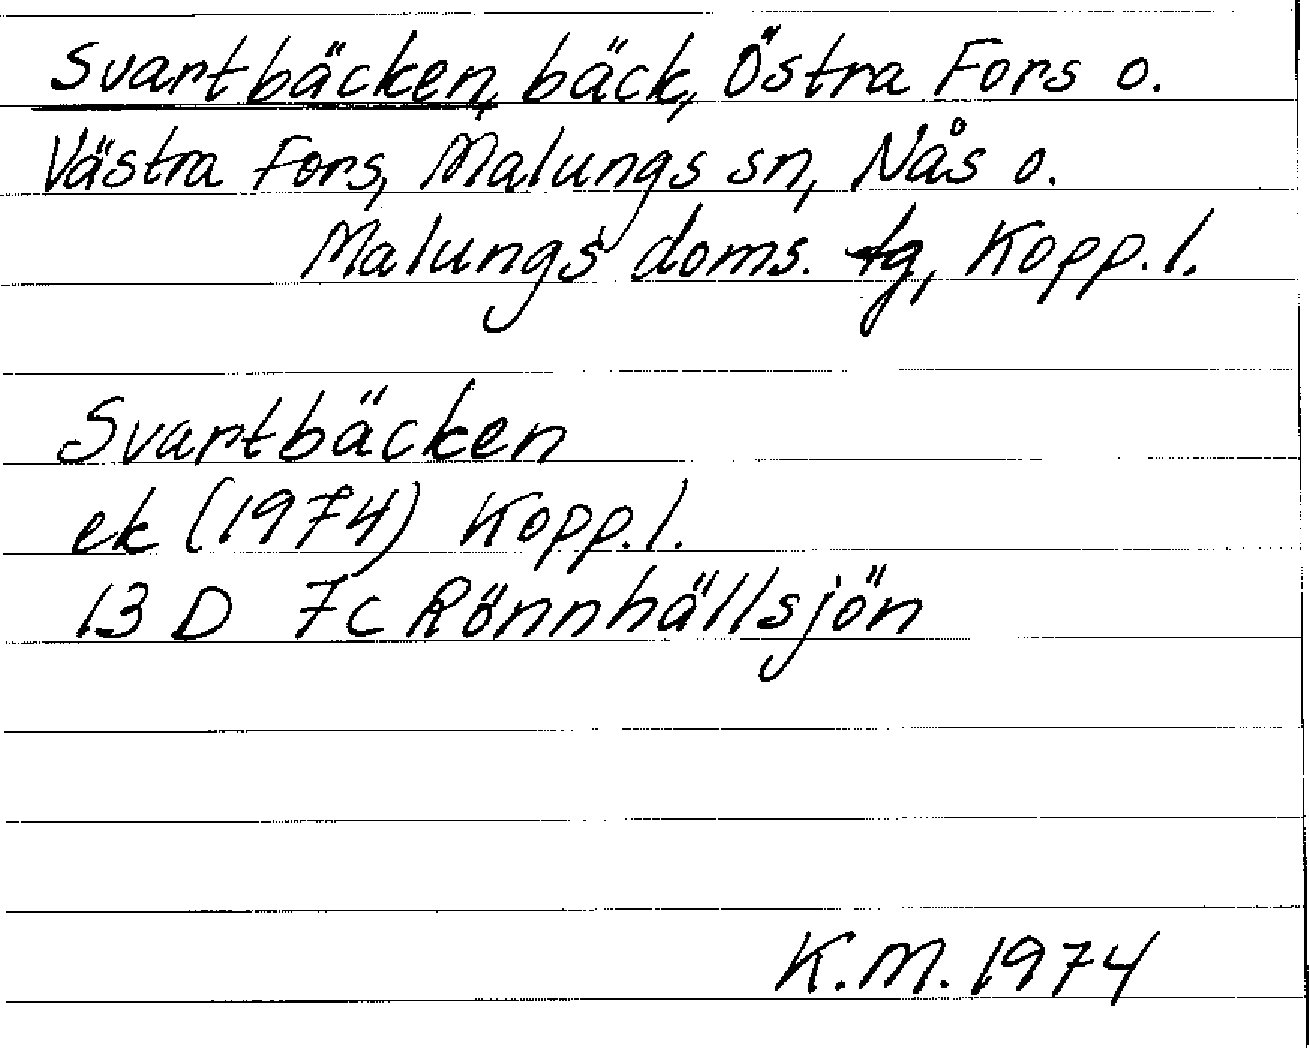 Svartbäcken, bäck, Östra Fors o.
Västra Fors, Malungs sn, Nås o.
Malungs doms. tg, Kopp. l.
Svartbäcken
ek (1974) Kopp. l.
13 D 7c Rönnhällsjön
K.M. 1974